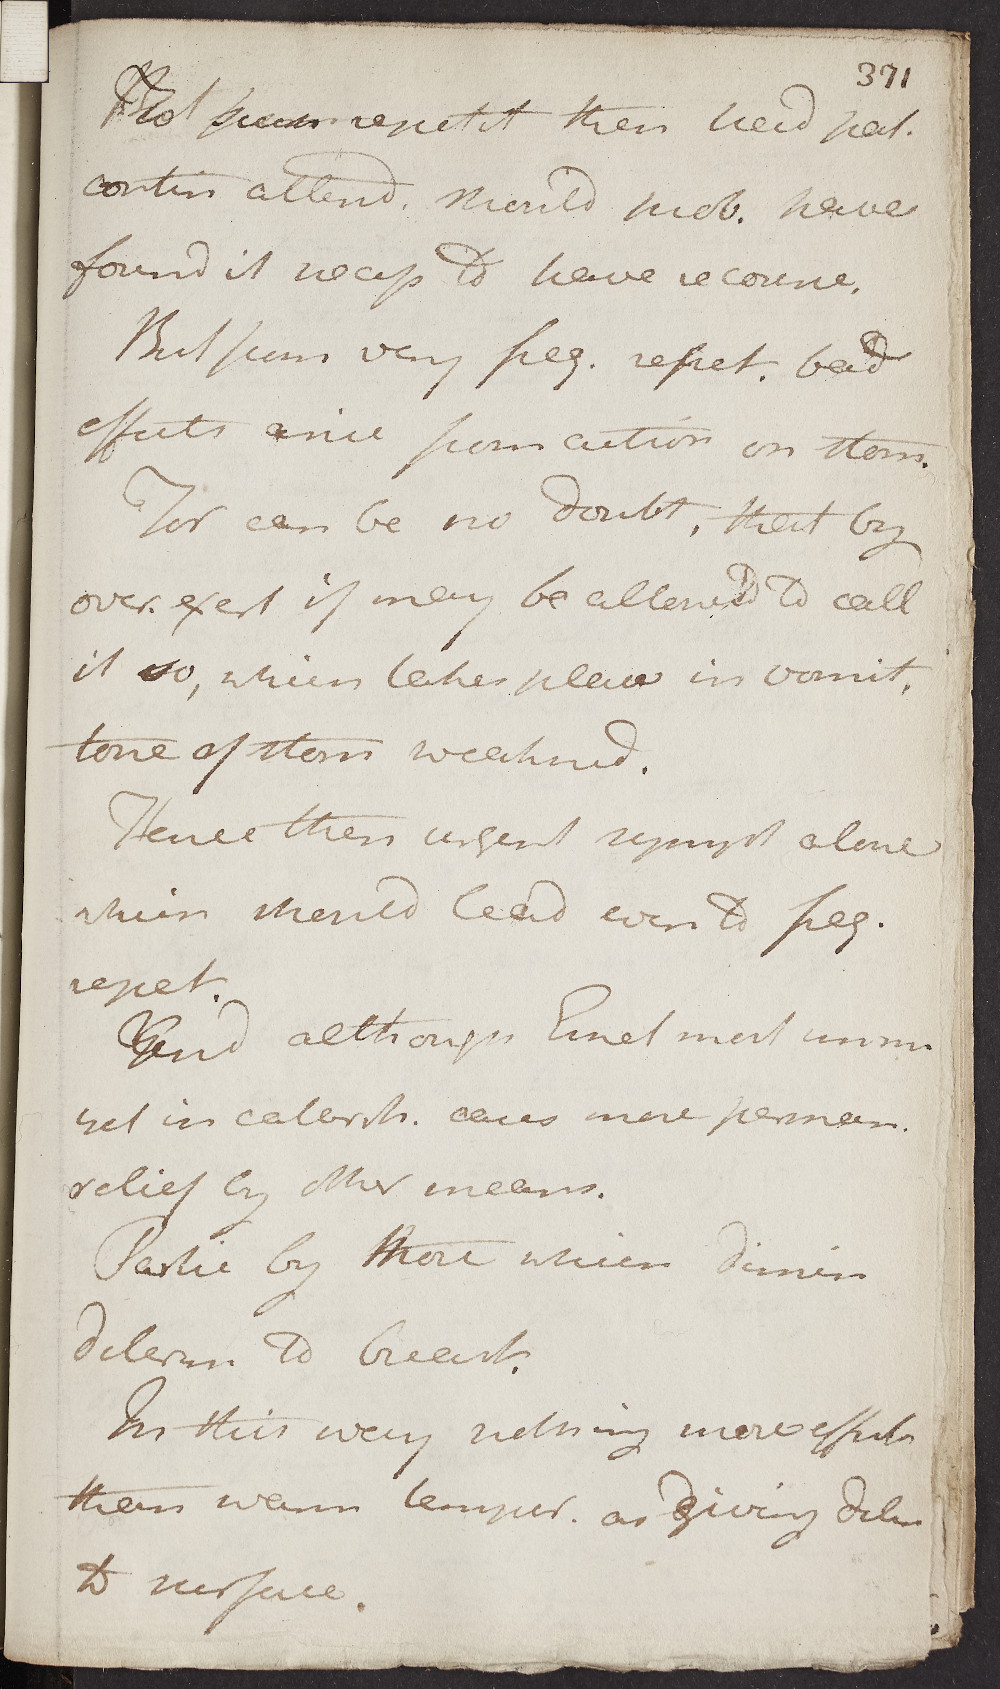 371
then had pat.
contin attend. should prob. have
found it necess to have recourse.
But from very freq. repet. bad
effects arise from action on stom.
For can be no doubt, that by
over. exert if may be allowed to call
it so, which takes place in vomit.
tone of stom weakned.
Hence then urgent sympt alone
which should lead even to freq.
repet.
And although Emet most
yet in catarrh. cases more perman.
relief by other means.
Partic by those which dimin
determ to breast.
In this way nothing more effect
than warm temper. as giving deter
to surface.